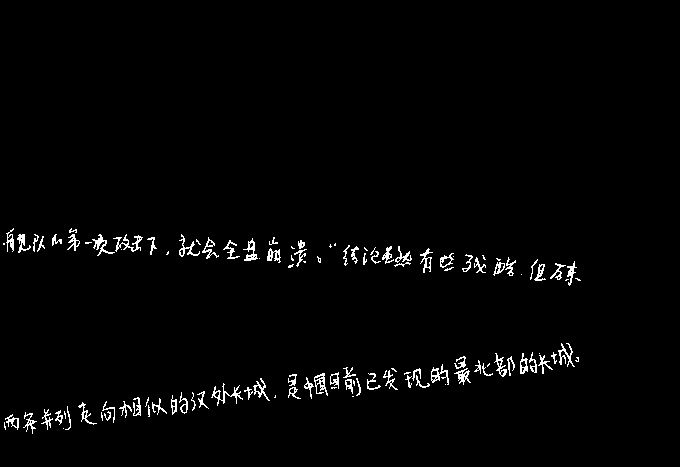 舰队的第一次攻击下，就会全盘崩溃。“结论虽然有些残酷，但
两条并列走向相似的汉外长城，是中国目前已发现的最北部的长城。